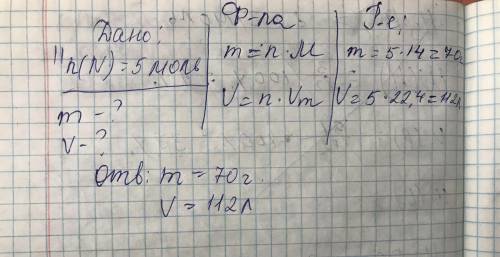 Дано:
n(N) = 5 моль
m - ?
V - ?
Ф-ла
m = n · M
V = n · Vm
Р-е:
m = 5 · 14 = 70г
V = 5 · 22,4 = 112л
Отв: m = 70г.
V = 112л